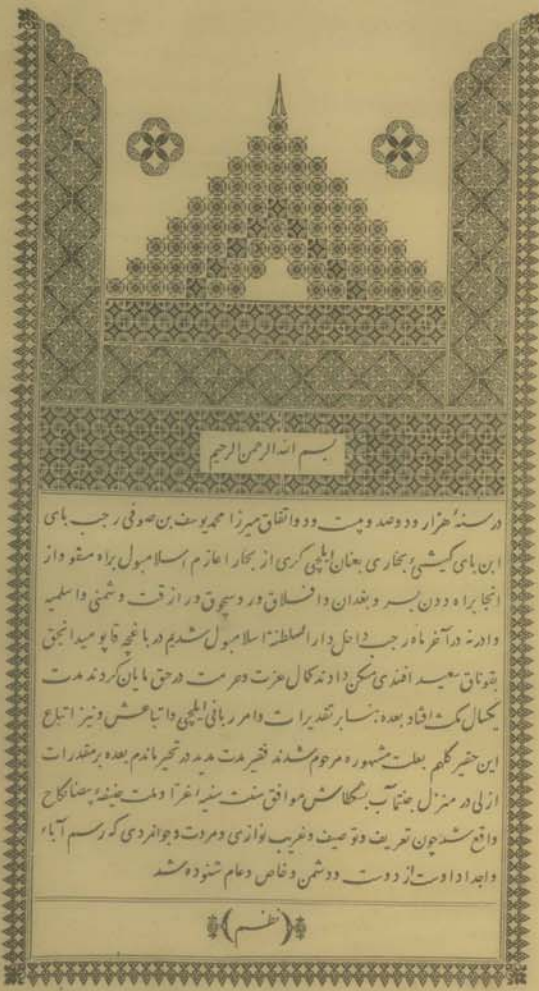 بسم الله الرحمن الرحيم
در سنهٔ هزار ودوصد وبیست ودو اتفاق میرزا محمدیوسف بن صوفی رجب بای
ابن بای کیشئ بخاری بعنان ایلچی کری از بخارا عازم اسلامبول براه مسقو واز
انجا براه ودن بسر وبغدان وافلاق ور وسچوق ور از قت وشمنی واسلمیه
وادرنه در آخر ماه رجب داخل دار السلطنهٔ اسلامبول شدیم در باغچه قاپو میدانجق
بقوناق سعید افندی مسکن دادند کمال عزت وحرمت در حق مایان کردند مدت
یکسال مکث افتاد بعده بنابر تقدیرات وامر ربانی ایلچی واتباعش ونیز اتباع
این حقیر کلهم بعلت مشهوره مرحوم شدند فقیر مدت مدید در تحیر ماندم بعده بر مقدرات
ازلی در منزل جنتمآب بکتاش موافق سنت سنیه اغرا وملت حنیفهٔ بیضا نکاح
واقع شد چون تعریف وتوصیف وغریب نوازی ومردت وجوانمردی که رسم آباء
واجداد اوست از دوست ودشمن وخاص وعام شنوده شد
(نظم)